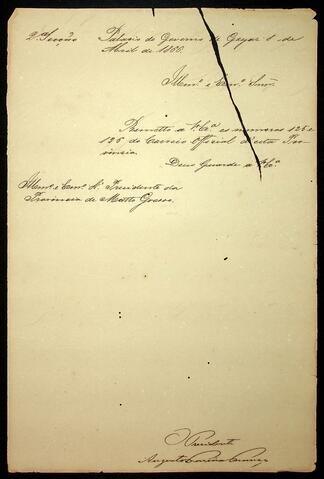 2ª Secção Palacio do Governo de Goyaz 8 de
Abril de 1866.
Illmº e Exmº Snr.
Remetto a V. Exª os numeros 125 e
126 do Correio Official d'esta Pro
vincia.
Deus Guarde a V. Exª
Illmº e Exmº Sr. Presidente da
Provincia de Matto Grosso.
O Presidente
Augusto Ferreira França